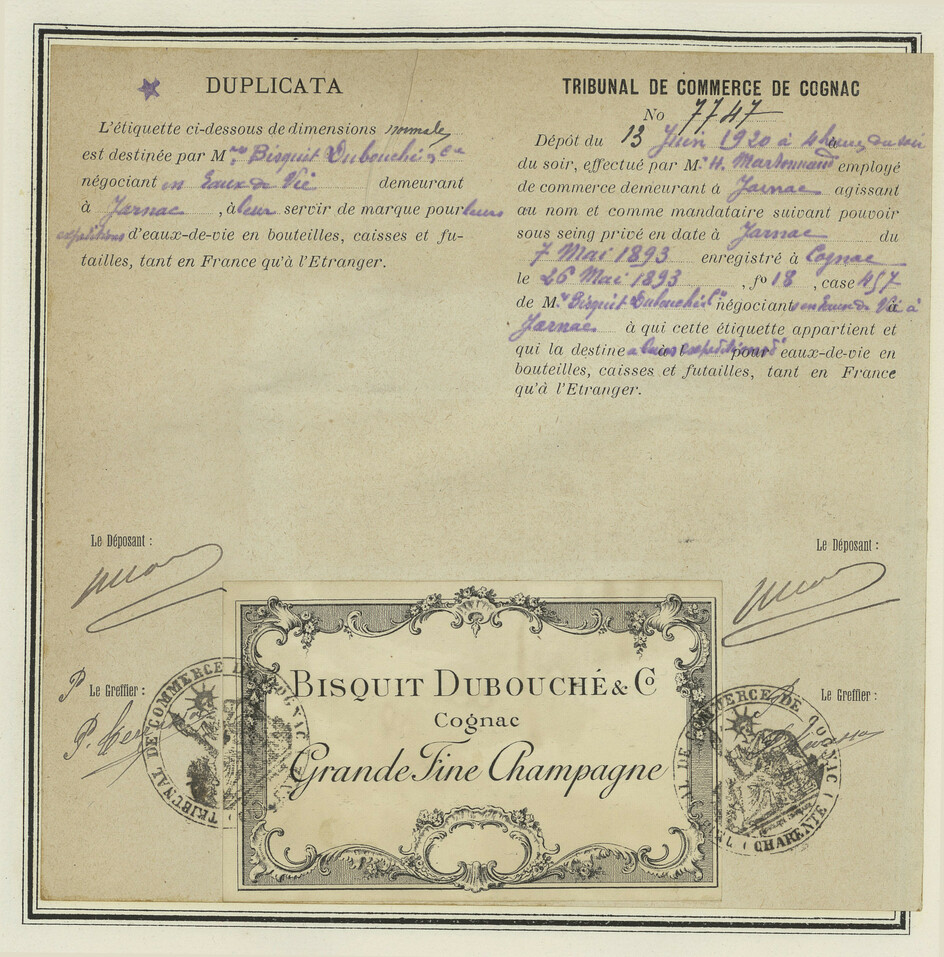 DUPLICATA
L'étiquette ci-dessous de dimensions normales
est destinée par M.rs Bisquit Dubouché & Cie
négociant en Eaux de Vie demeurant
à Jarnac, à leur servir de marque pour leurs
expéditions d'eaux-de-vie en bouteilles, caisses et fu-
tailles, tant en France qu'à l'Etranger.
TRIBUNAL DE COMMERCE DE COGNAC
No 7747
Dépôt du 13 Juin 1920 à 4 heures du soir
du soir, effectué par M.r H. employé
de commerce demeurant à Jarnac agissant
au nom et comme mandataire suivant pouvoir
sous seing privé en date à Jarnac du
7 Mai 1893 enregistré à Cognac
le 26 Mai 1893, fo 18, case 457
de M.rs Bisquit Dubouché & Cie négociants en Eaux de Vie à
Jarnac à qui cette étiquette appartient et
qui la destine a leurs expéditions d'eaux-de-vie en
bouteilles, caisses et futailles, tant en France
qu'à l'Etranger.
Le Déposant :
Le Déposant :
P Le Greffier :
Le Greffier :
TRIBUNAL DE COMMERCE DE COGNAC
TRIBUNAL DE COMMERCE DE COGNAC (CHARENTE)
BISQUIT DUBOUCHÉ & Co
Cognac
Grande Fine Champagne